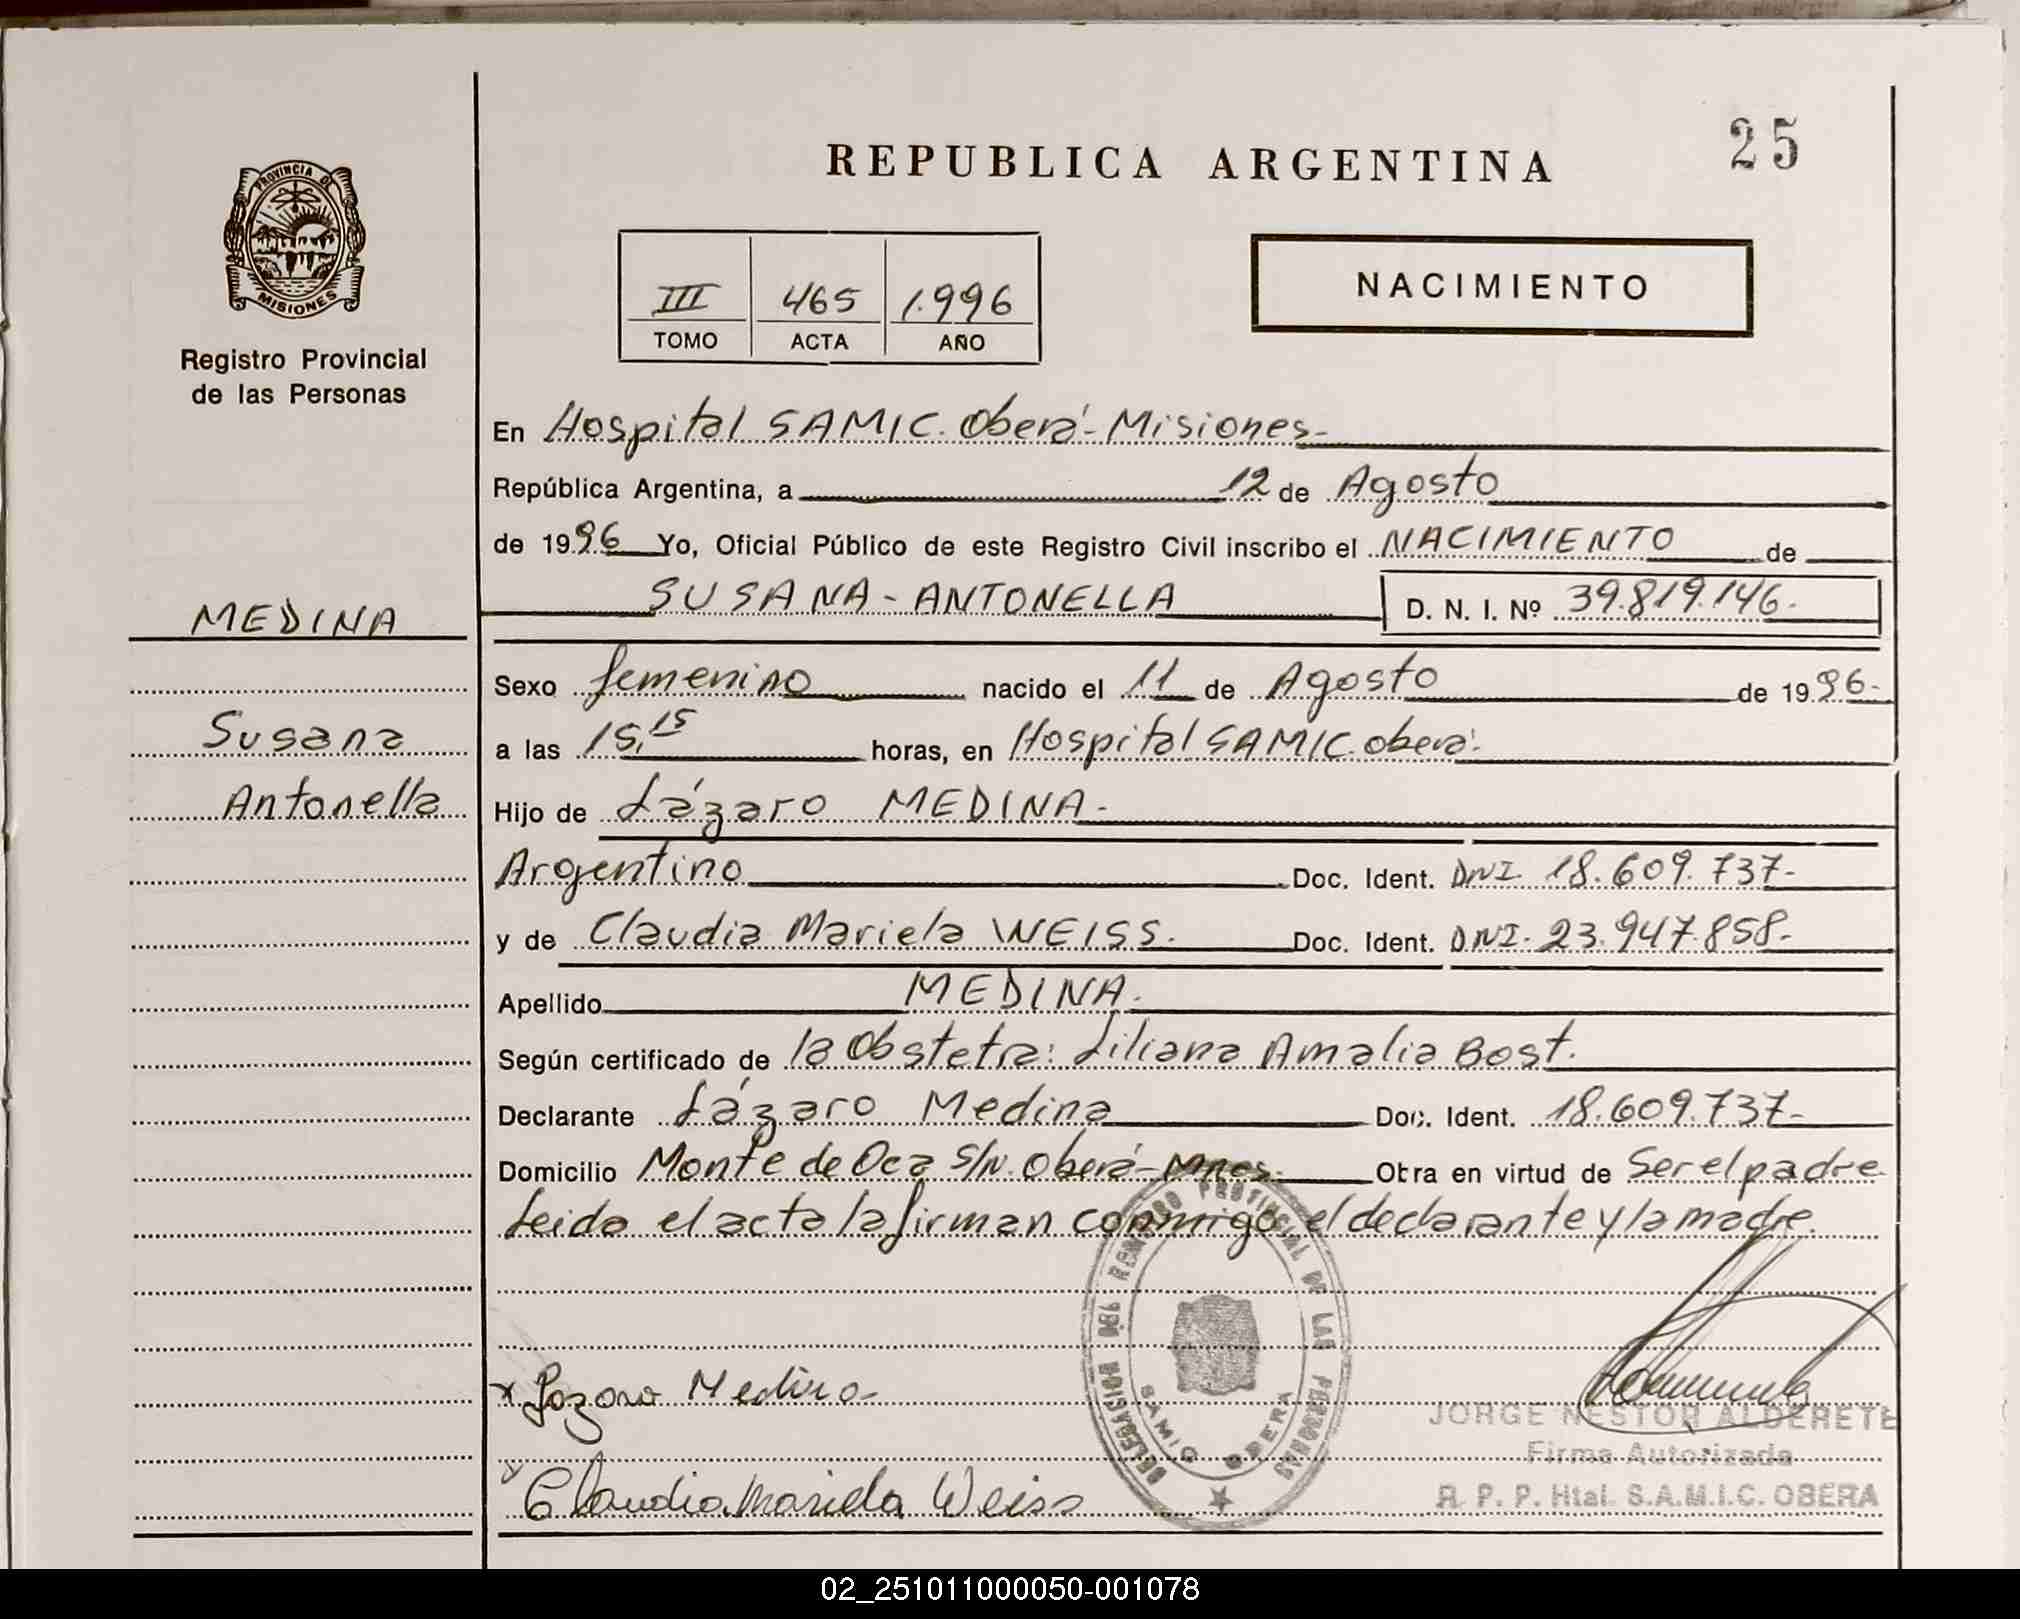 REPUBLICA ARGENTINA
25
PROVINCIA DE
MISIONES
Registro Provincial
de las Personas
III 465 1.996
TOMO ACTA AÑO
NACIMIENTO
En Hospital SAMIC. Oberá - Misiones -
República Argentina, a 12 de Agosto
de 1996 Yo, Oficial Público de este Registro Civil inscribo el NACIMIENTO de
SUSANA - ANTONELLA D. N. I. Nº 39.819.146.
MEDINA
Susana
Antonella
Sexo femenino nacido el 11 de Agosto de 1996.-
a las 15,15 horas, en Hospital SAMIC. oberá.
Hijo de Lázaro MEDINA.-
Argentino Doc. Ident. DNI. 18.609.737-
y de Claudia Mariela WEISS. Doc. Ident. DNI. 23.947.858-
Apellido MEDINA.
Según certificado de la Obstetra: Liliana Amalia Bost.
Declarante Lázaro Medina Doc. Ident. 18.609.737-
Domicilio Monte de Oca S/N. Oberá - Mnes. Obra en virtud de Ser el padre
Leida el acta la firman conmigo el declarante y la madre.
DELEGACION DEL REGISTRO PROVINCIAL DE LAS PERSONAS
SAMIC OBERA
x Lazaro Medina
JORGE NESTOR ALDERETE
Firma Autorizada
R. P. P. Htal. S.A.M.I.C. OBERA
Claudia Mariela Weiss
02_251011000050-001078